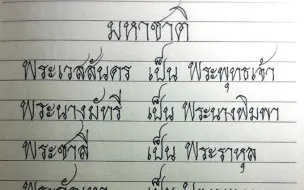 มหาชาติ
พระเวสสันดร เป็น พระพุทธเจ้า
พระนางมัทรี เป็น พระนางพิมพา
พระชาลี เป็น พระราหุล
เป็น